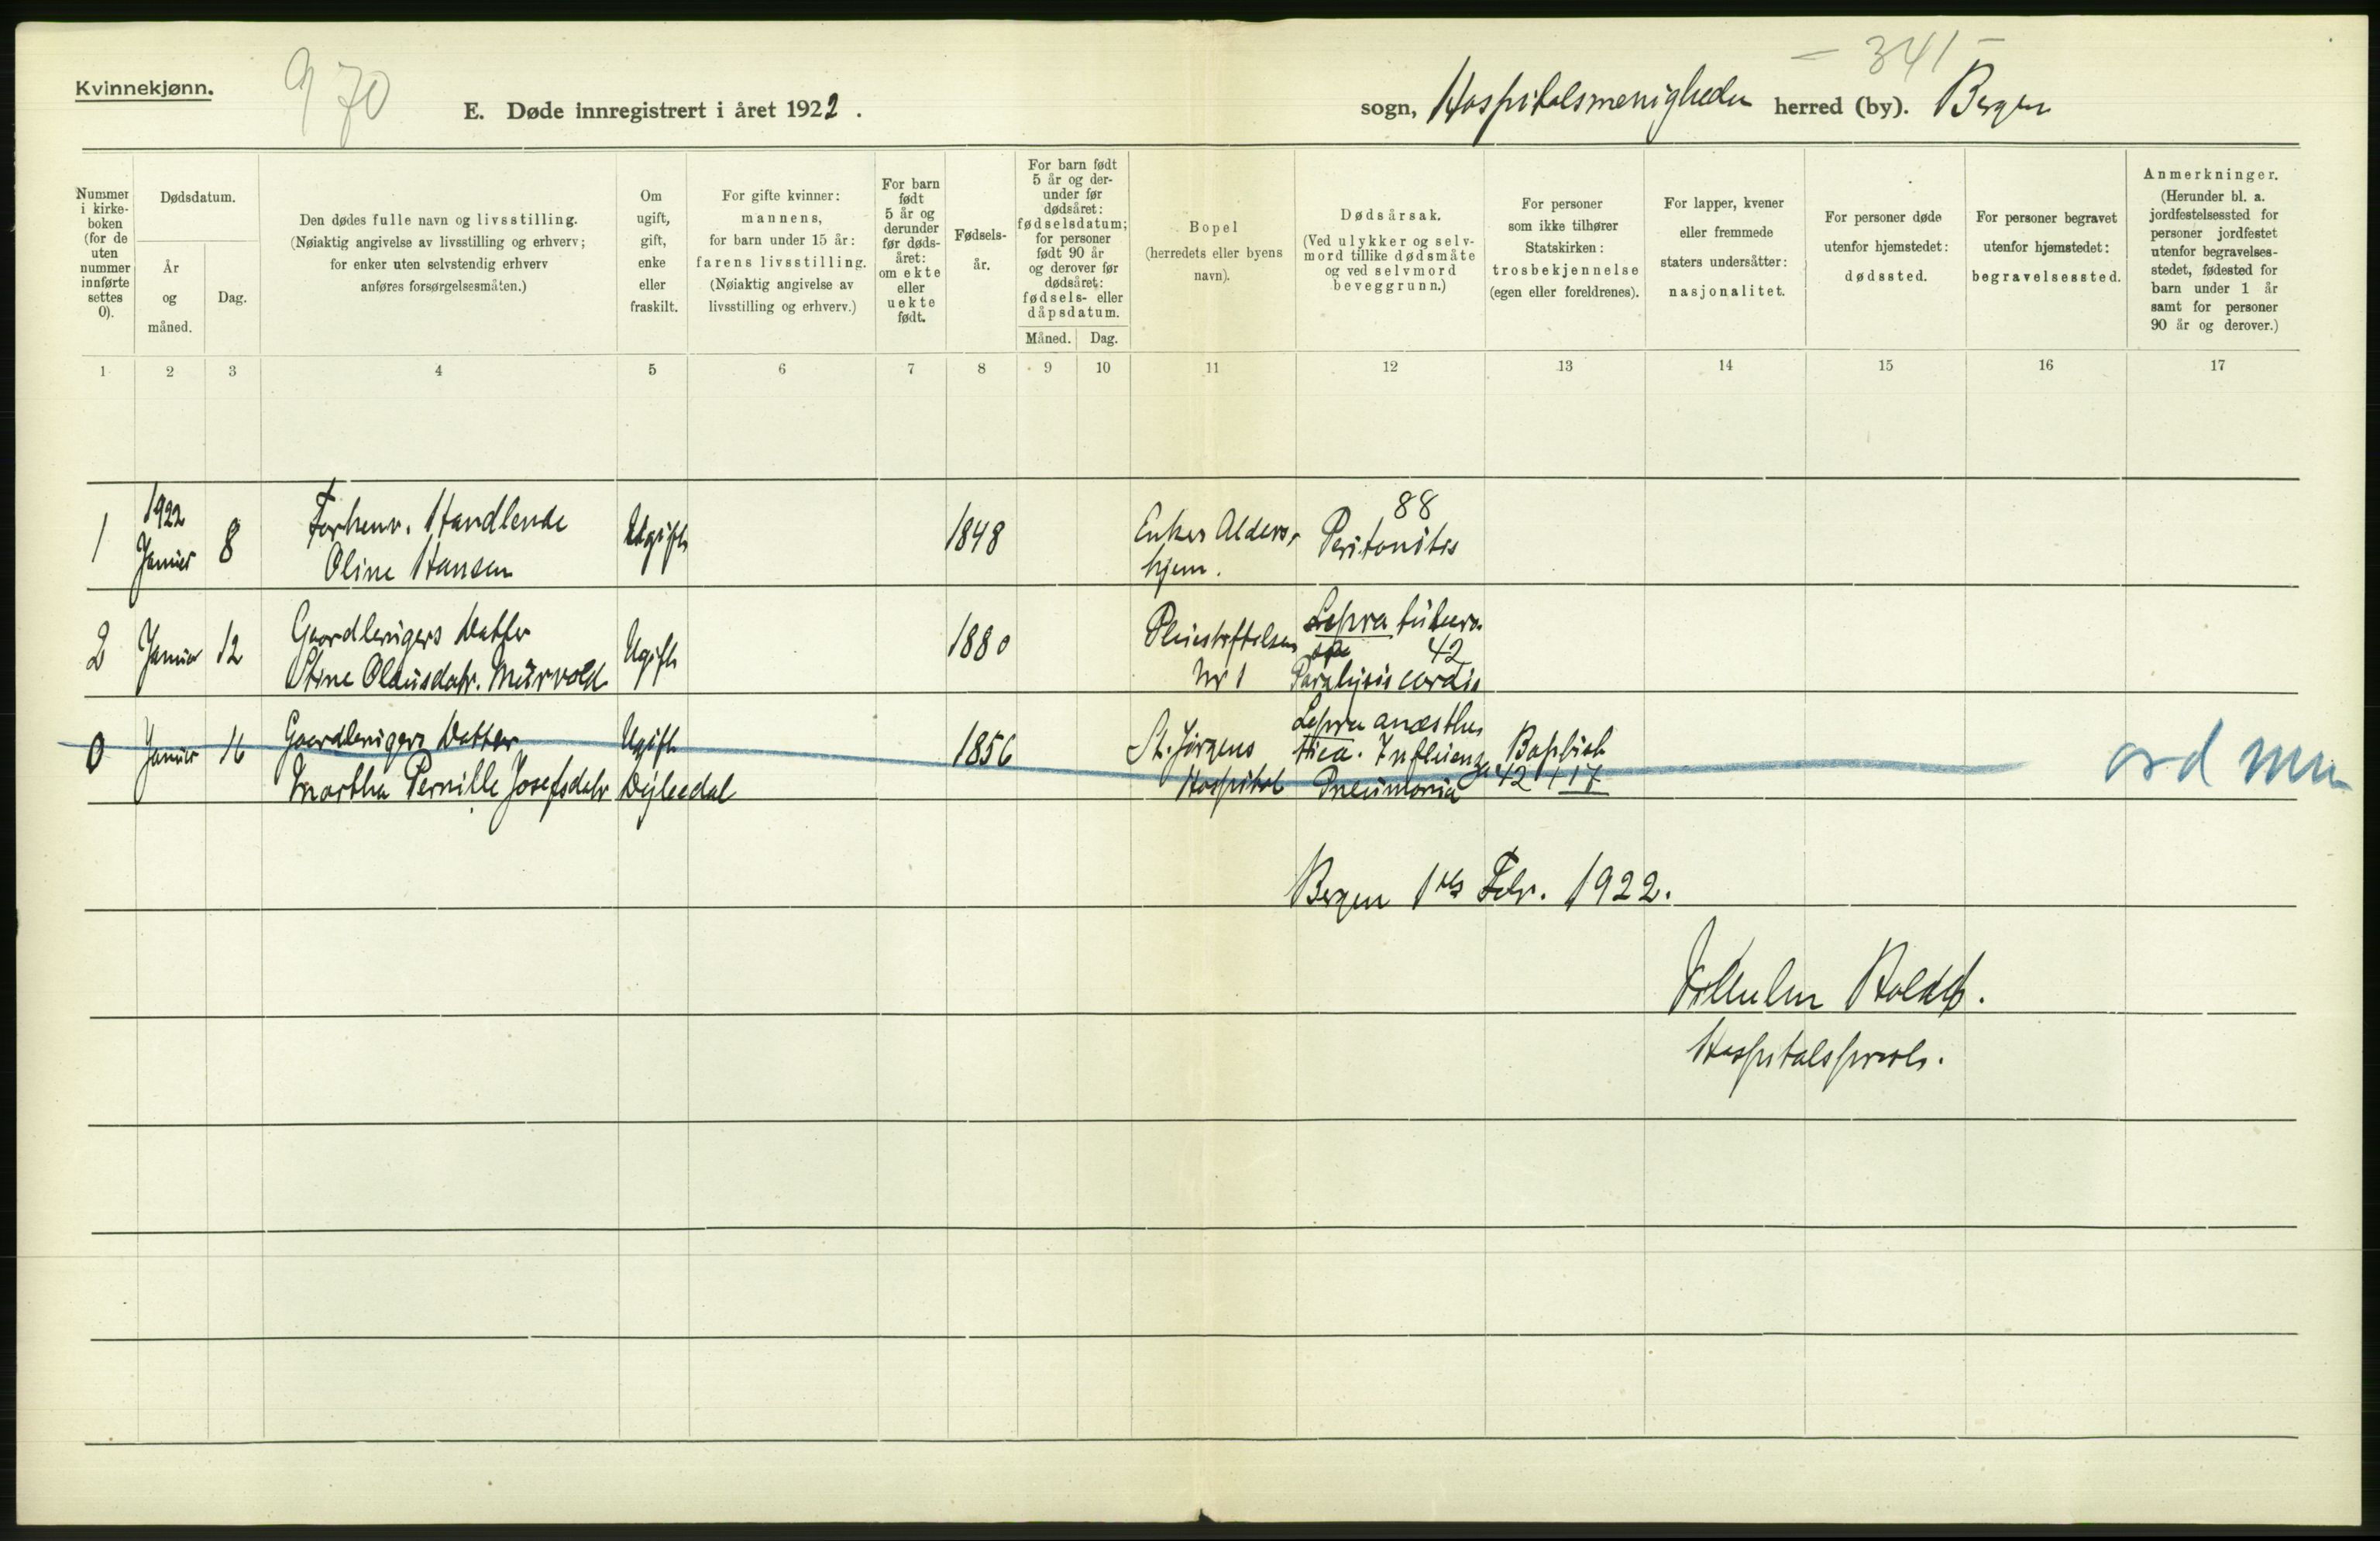 Kvinnekjønn.
970
- 341 -
E. Døde innregistrert i året 1922.
sogn, Hospitalsmenigheden herred (by). Bergen
Nummer i kirke-boken (for de uten nummer innførte settes 0).
Dødsdatum.
År og måned.
Dag.
Den dødes fulle navn og livsstilling.
(Nøiaktig angivelse av livsstilling og erhverv;
for enker uten selvstendig erhverv
anføres forsørgelsesmåten.)
Om
ugift,
gift,
enke
eller
fraskilt.
For gifte kvinner:
mannens,
for barn under 15 år:
farens livsstilling.
(Nøiaktig angivelse av
livsstilling og erhverv.)
For barn
født
5 år og
derunder
før døds-
året:
om ekte
eller
uekte
født.
Fødsels-
år.
For barn født
5 år og der-
under før
dødsåret:
fødselsdatum;
for personer
født 90 år
og derover før
dødsåret:
fødsels- eller
dåpsdatum.
Måned. Dag.
Bopel
(herredets eller byens
navn).
Dødsårsak.
(Ved ulykker og selv-
mord tillike dødsmåte
og ved selvmord
beveggrunn.)
For personer
som ikke tilhører
Statskirken:
trosbekjennelse
(egen eller foreldrenes).
For lapper, kvener
eller fremmede
staters undersåtter:
nasjonalitet.
For personer døde
utenfor hjemstedet:
dødssted.
For personer begravet
utenfor hjemstedet:
begravelsessted.
Anmerkninger.
(Herunder bl. a.
jordfestelsessted for
personer jordfestet
utenfor begravelses-
stedet, fødested for
barn under 1 år
samt for personer
90 år og derover.)
1 2 3 4 5 6 7 8 9 10 11 12 13 14 15 16 17
1 1922 Januar 8 Forhenv. Handlende Ugift 1848 Enkes Alders- 88
Oline Hansen hjem. Peritonitis
2 Januar 12 Gaardbrugers Datter Ugift 1880 Pleiestiftelsen Lepra tubero
Stine Olausdatr. Murvold Nr 1 sa 42
Paralysis cordis
0 Januar 16 Gaardbrugers Datter Ugift 1856 St. Jørgens Lepra anæsthe
Hospital thica. Influenza Baptist
Martha Pernille Josefsdatr Dejleedal Pneumonia 42 + 17
Bergen 1ste Febr. 1922.
Hospitalsprest.